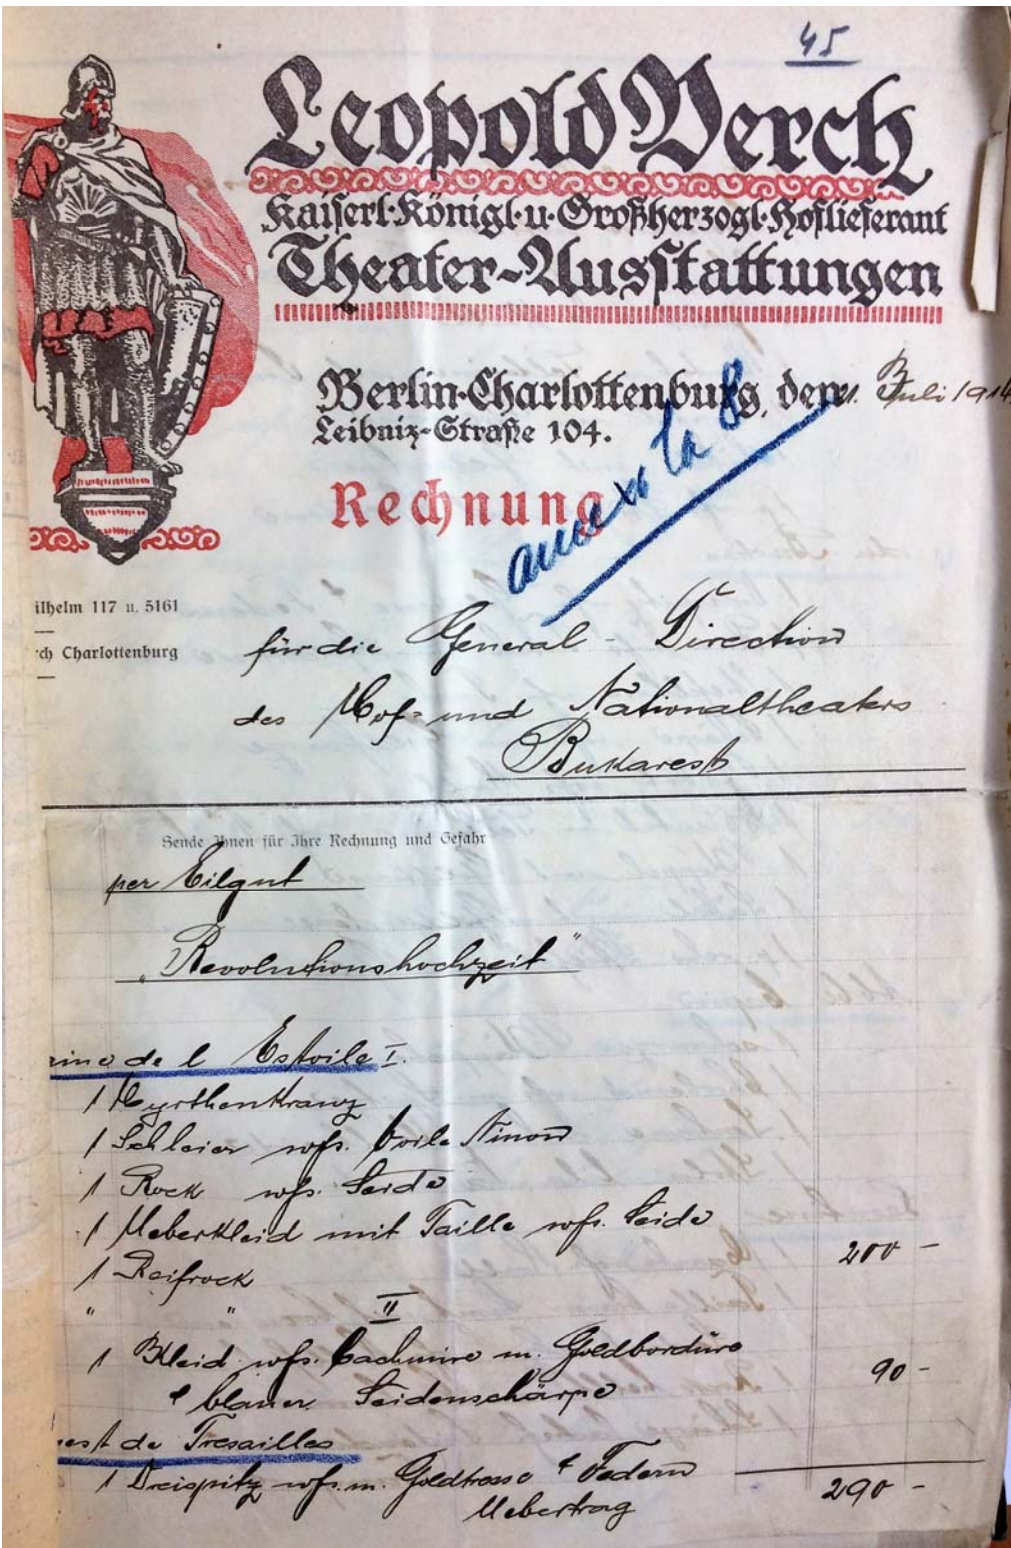 45
Leopold Verch
Kaiserl. Königl. u. Großherzogl. Hoflieferant
Theater-Ausstattungen
Berlin-Charlottenburg, den 1. Juli 1914
Leibniz-Straße 104.
Rechnung
anexo la 8
ilhelm 117 u. 5161
ch Charlottenburg
für die General-Direction
des Hof- und Nationaltheaters
Bukarest
Sende Ihnen für Ihre Rechnung und Gefahr
per Eilgut
"Revolutionshochzeit"
rine de l Estoile I.
1 Myrthenkranz
1 Schleier wß. Voile Ninon
1 Rock wß. Seide
1 Ueberkleid mit Taille wß. Seide
1 Reifrock 200 -
" " II
1 Kleid wß. Cachmire m. Goldbordüre
& blauer Seidenschärpe 90 -
nest de Tresailles
1 Dreispitz wß. m. Goldtresse & Federn
Uebertrag 290 -